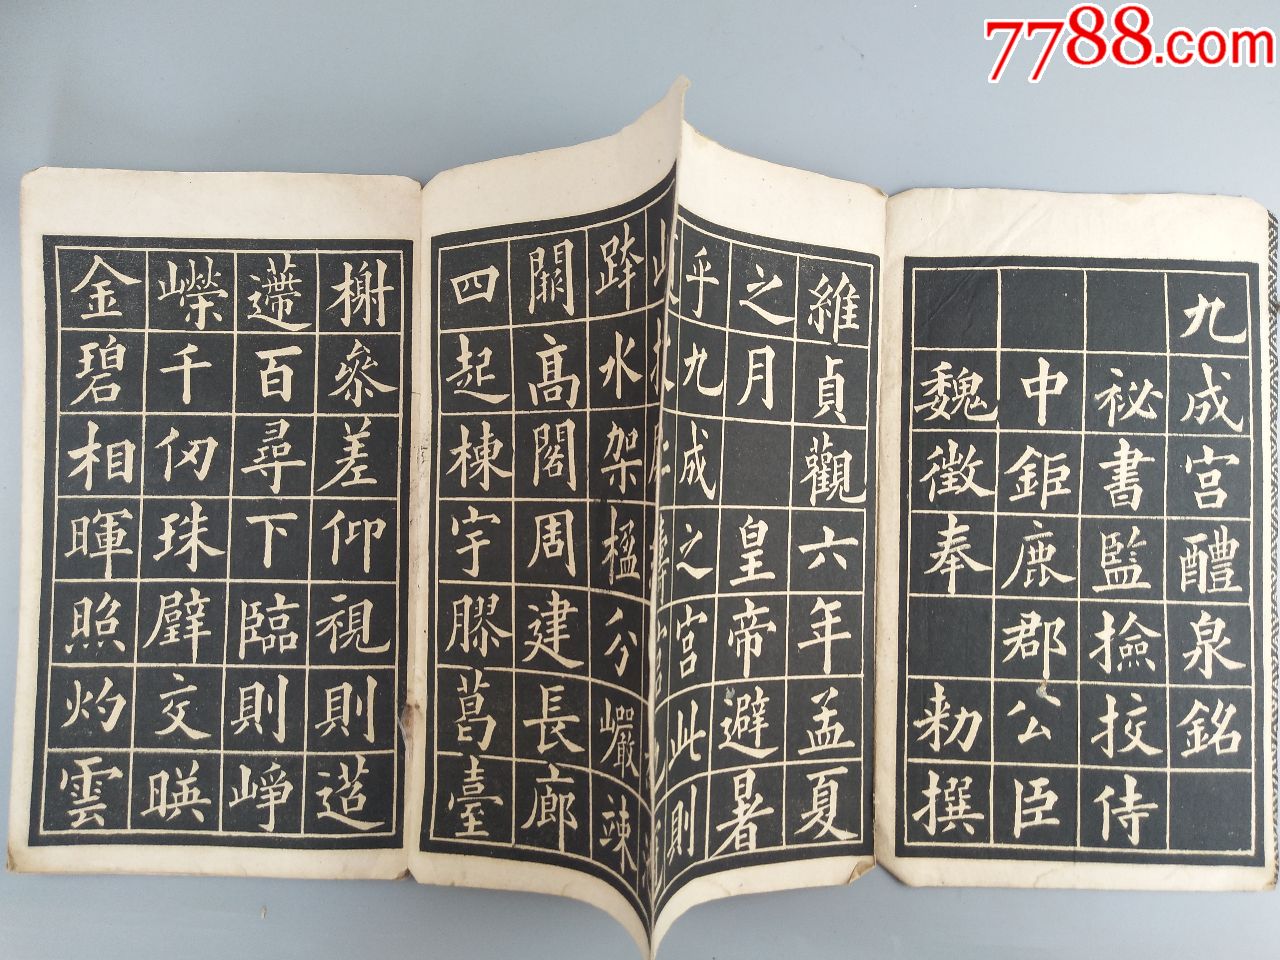 7788.com
九成宮醴泉銘
祕書監撿挍侍
中鉅鹿郡公臣
魏徵奉勑撰
維貞觀六年孟夏
之月皇帝避暑
乎九成之宮此則
跨水架楹分巖竦
闕高閣周建長廊
四起棟宇膠葛臺
榭參差仰視則迢
遰百尋下臨則崢
嶸千仞珠璧交暎
金碧相暉照灼雲